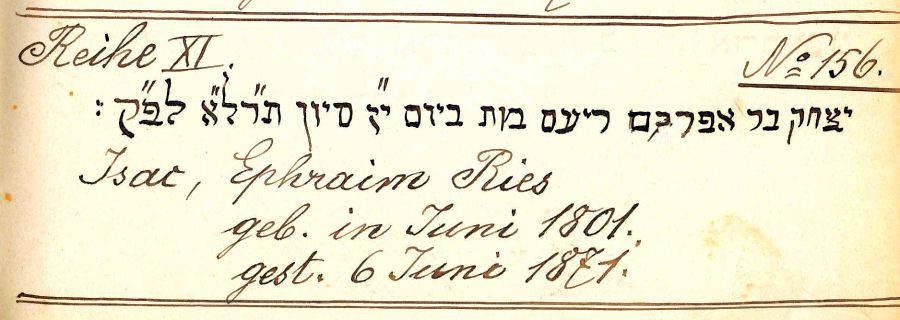 Reihe XI.
No 156.
יצחק בר אפרים ריעס מת ביום י״ז סיון תרל״א לפ״ק :
Isac, Ephraim Ries
geb. in Juni 1801.
gest. 6 Juni 1871.